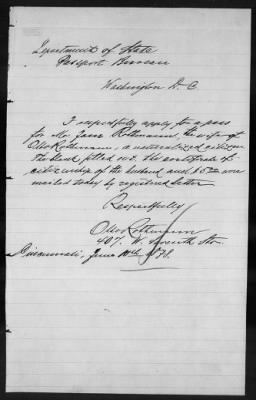 Department of State
Passport Bureau
Washington D. C.
I respectfully apply to a pass
for Mr. Jane Rothmann, the wife of
Otto Rothmann, a naturalized citizen
The blank filled out. The certificate of
citizenship of the husband and $5.00 were
mailed today by registered letter
Respectfully
Otto Rothmann
407 W. Seventh Str.
Cincinnati, June